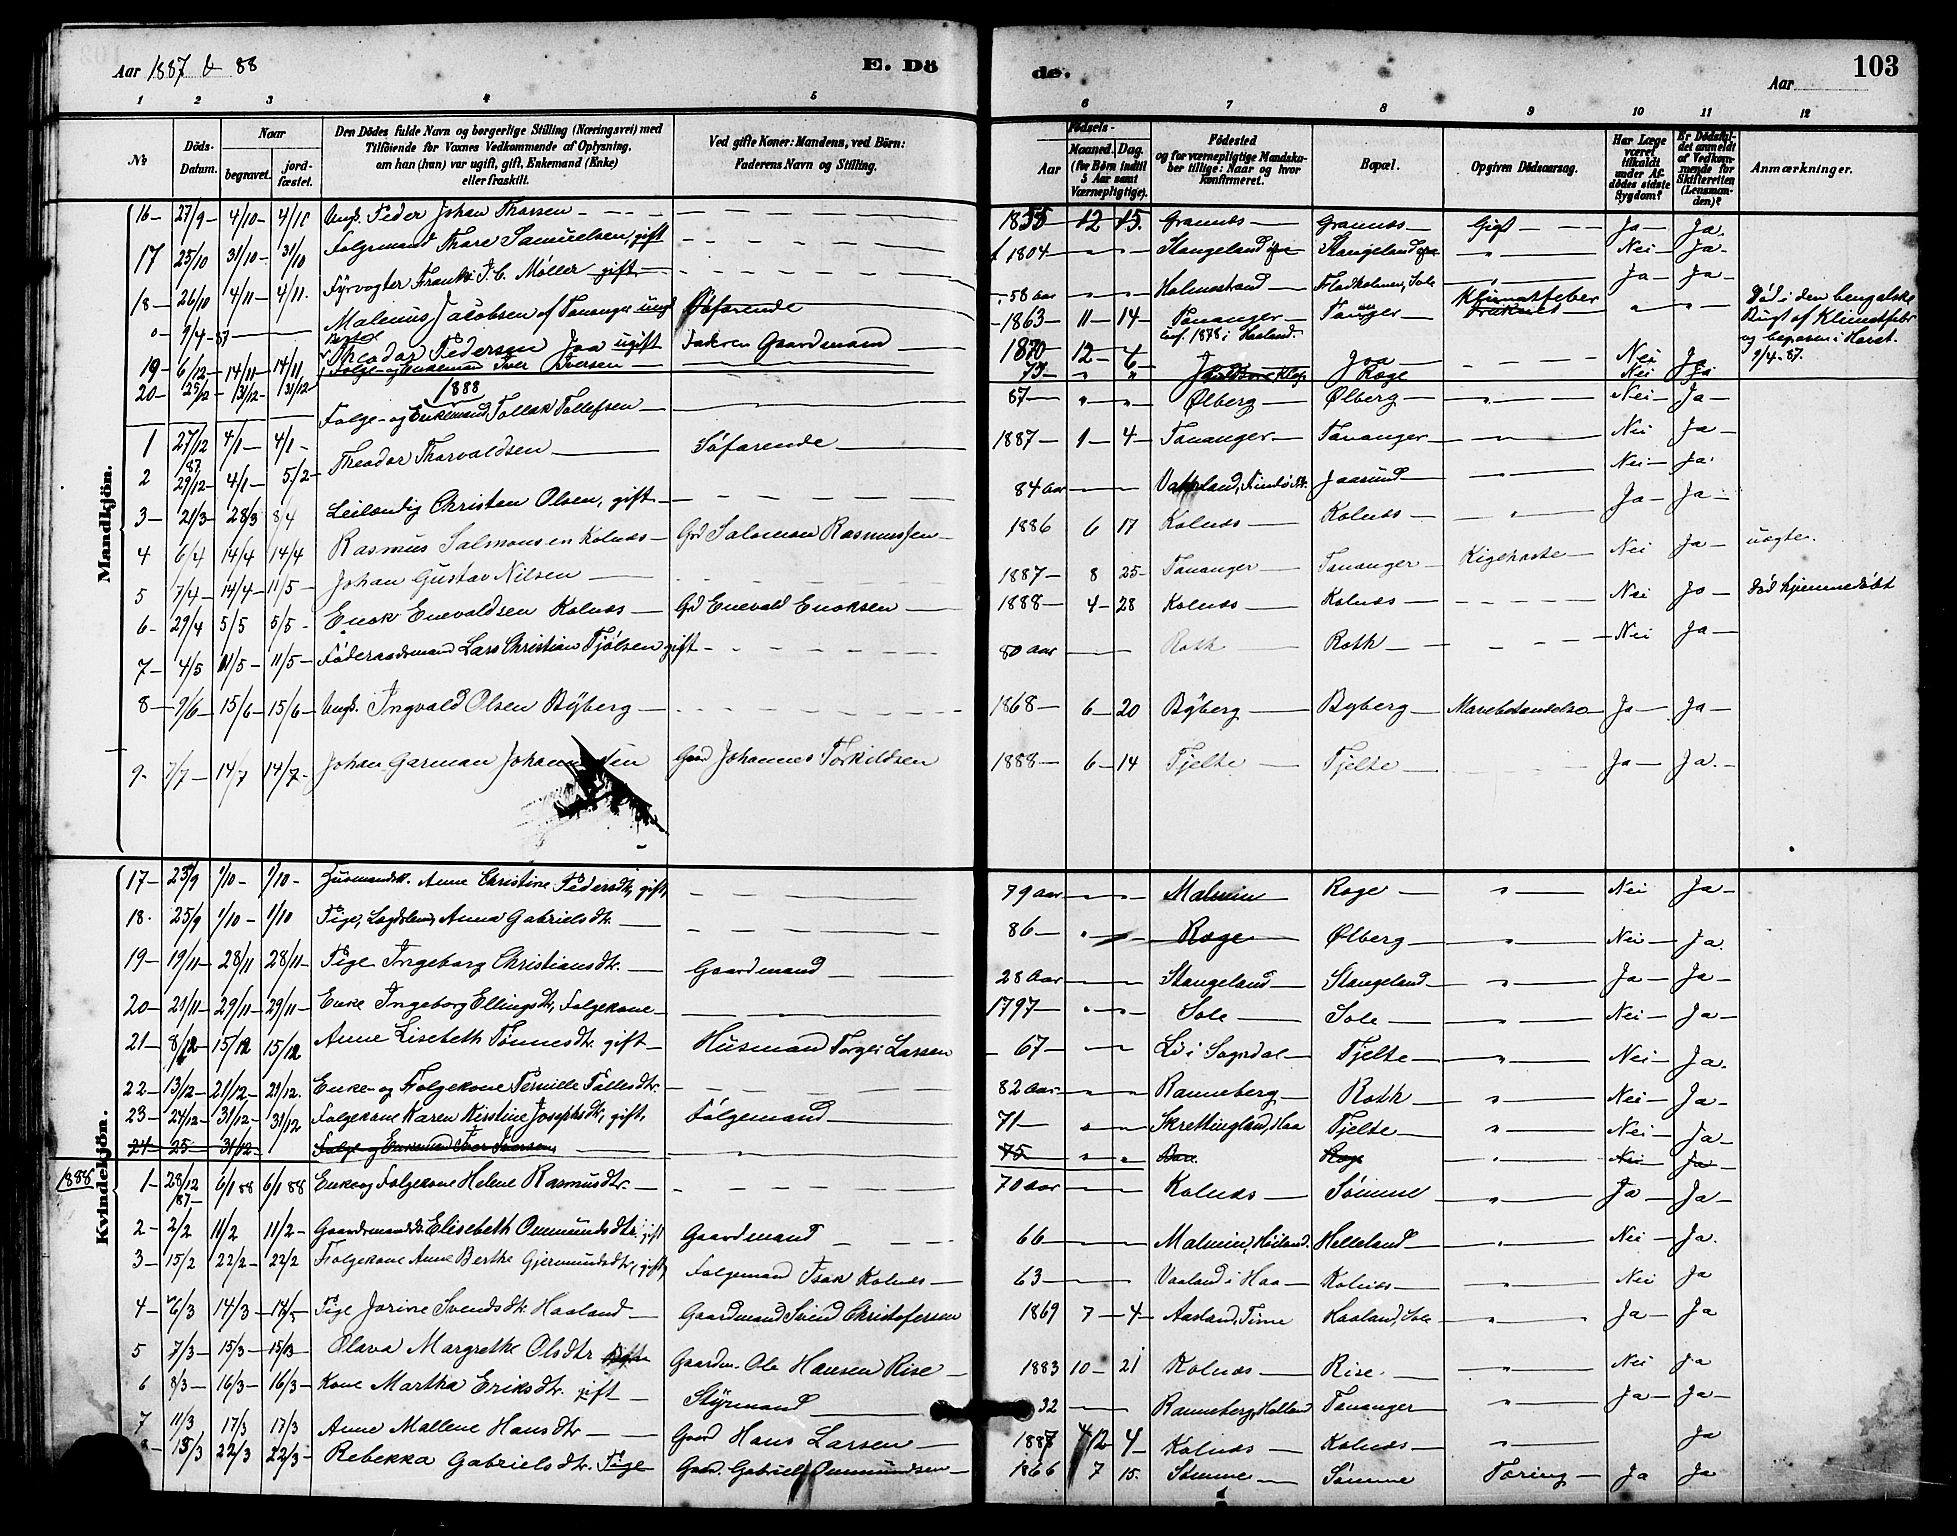 Aar 1887 & 88
E. Dö
de.
Aar
103
1 2 3 4 5 6 7 8 9 10 11 12
No
Döds-Datum.
Naar
begravet.
jordfæstet.
Den Dödes fulde Navn og borgerlige Stilling (Næringsvei) med
Tilföiende for Voxnes Vedkommende af Oplysning,
om han (hun) var ugift, gift, Enkemand (Enke)
eller fraskilt.
Ved gifte Koner: Mandens, ved Börn:
Faderens Navn og Stilling.
Födsels-
Aar
Maaned. Dag.
(for Börn indtil 5 Aar samt Værnepligtige).
Födested
og for værnepligtige Mandska-
ber tillige: Naar og hvor
konfirmeret.
Bopæl.
Opgiven Dödsaarsag.
Har Læge været tilkaldt under Afdödes sidste Sygdom?
Er Dödsfaldet anmeldt af Vedkommende for Skifteretten (Lensmanden)?
Anmærkninger.
Mandkjön.
16- 27/9- 4/10- 4/10 Ungk. Peder Johan Thorsen 1855 12 15. Grannes Grannes Gigt Ja Ja.
17 25/10 31/10- 31/10 Folgemand Thore Samuelsen, gift 1804 Stangeland Stangeland Nei Ja
18- 26/10 4/11- 4/11. Fyrvogter Frantz J. C. Møller gift 58 aar Holmestrand Fladholmen, Sole Ja Ja
9/4-87 Malenius Jacobsen af Tananger ungk Søfarende 1863 11 14 Tananger conf. 1878 i Haaland. Tananger Klimatfeber Død i den bengalske Bugt af Klimatfeber og begraven i Havet. 9/4-87.
19- 6/12- 14/11- 14/11 Theodor Pedersen Joa ugift Faderen Gaardmand 1870 12 6 Joa Joa Nei Ja
20- 25/12- 31/12- 31/12 Folge- og Enkemand Iver Iversen 75 Roge Nei Ja
1888
1 27/12 87 4/1- 4/1- Folge- og Enkemand, Tollak Tollefsen 87 Ølberg Ølberg Nei Ja
2 29/12- 4/1- 5/2- Theodor Thorvaldsen Søfarende 1887 1 4 Tananger Tananger Nei Ja
3- 21/3- 28/3 8/4 Leilendig Christen Olsen, gift 84 aar Jaasund Nei Ja
4 6/4 14/4 14/4 Rasmus Salmonsen Kolnes Grd Salomon Rasmussen 1886 6 17 Kolnes Kolnes Ja Ja
5 7/4- 14/4- 11/5- Johan Gustav Nilsen 1887 8 25 Tananger Tananger Kighoste Nei Ja uægte.
6- 29/4 5/5 5/5- Enok Enevaldsen Kolnes Gd Enevald Enoksen 1888 4 28 Kolnes Kolnes Nei Ja død hjemmedøbt
7- 4/5 11/5- 11/5- Føderaadsmand Lars Christian Tjølsen gift 80 aar Roth Roth Nei Ja
8- 9/6- 15/6- 15/6- Ungk. Ingvald Olsen Byberg 1868 6 20 Byberg Byberg Mavebetændelse Ja Ja
9- 7/7- 14/7 14/7- Johan Garman Johannesen Gaard Johannes Torkildsen 1888 6 14 Tjelte Tjelte Ja Ja.
Kvindekjön.
17- 23/9 1/10- 1/10- Husmandsk. Anne Christine Pedersdtr, gift 79 aar Malmin Roge Nei Ja
18. 25/9 1/10- 1/10 Pige, Lægdslem, Anna Gabrielsdtr. 86 Roge Ølberg Nei Ja.
19- 19/11- 28/11 28/11- Pige Ingeborg Christiansdtr. Gaardmand 28 Aar Stangeland Stangeland Ja Ja
20- 21/11- 29/11- 29/11- Enke Ingeborg Ellingsdtr, Folgekone 1797 Sole Sole Nei Ja
21- 8/12 15/12 15/12 Anne Lisebeth Tønnesdtr. gift Husmand Torger Larsen 67 Li i Sogndal Tjelte Nei Ja.
22- 13/12- 21/12- 21/12. Enke- og Folgekone Pernille Pallesdtr. 82 aar Ranneberg Roth Nei Ja
23- 24/12- 31/12- 31/12 Folgekone Karen Kirstine Josephsdtr, gift, Folgemand 71 Skrettingland, Haa Tjelte Nei Ja
24 25 31/12 Folge og Enkemand Iver Iversen 75 Roge Nei Ja
1888
1- 28/12 87- 6/1 88 6/1 88 Enke og Folgekone Helene Rasmusdtr. 70 aar Kolnes Sømme Ja Ja
2- 2/2 11/2 11/2- Gaardmandsk. Elisebeth Ommundsdtr. gift Gaardmand 66 Malmin, Høiland. Helleland Nei Ja.
3- 15/2 22/2- 22/2 Folgekone Anne Berthe Gjermundsdtr, gift, Folgemand Isak Kolnes 63 Vaaland i Haa Kolnes Nei Ja
4- 6/3 14/3 Pige Jorine Svendsdtr Haaland Gaardmand Svend Christofersen 1869 7 4 Aasland, Time Haaland, Sole Ja Ja
5 7/3- 15/3- 15/3- Olava Margrethe Olsdtr Gaardm. Ole Hansen Rise 1883 10 21 Kolnes Rise Nei Ja
6 8/3- 16/3- 16/3- Kone Martha Eriksdtr. gift Styrmand 32 Ranneberg, Holland Tananger Ja Ja
7 11/3 17/3 17/3 Anne Mallene Hansdtr Gaard Hans Larsen 1887 12 4 Kolnes Kolnes Ja
15/3 22/3 22/3- Rebekka Gabrielsdtr. Pige Gaard. Gabriel Ommundsen 1866 7 15. Sømme Sømme Tæring Ja Ja